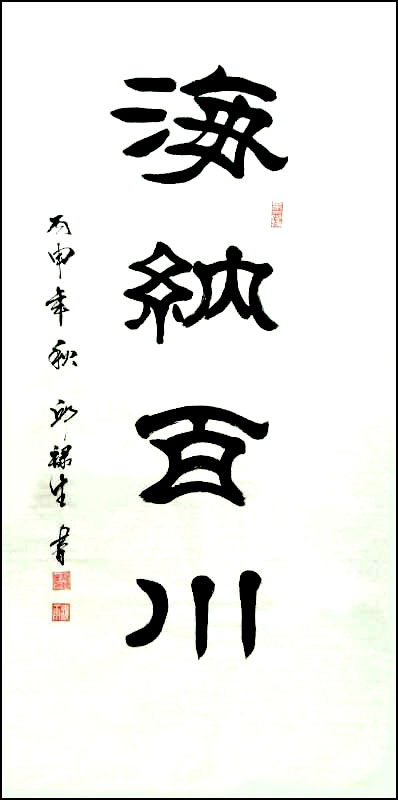 海納百川
丙申年秋邱禄生書